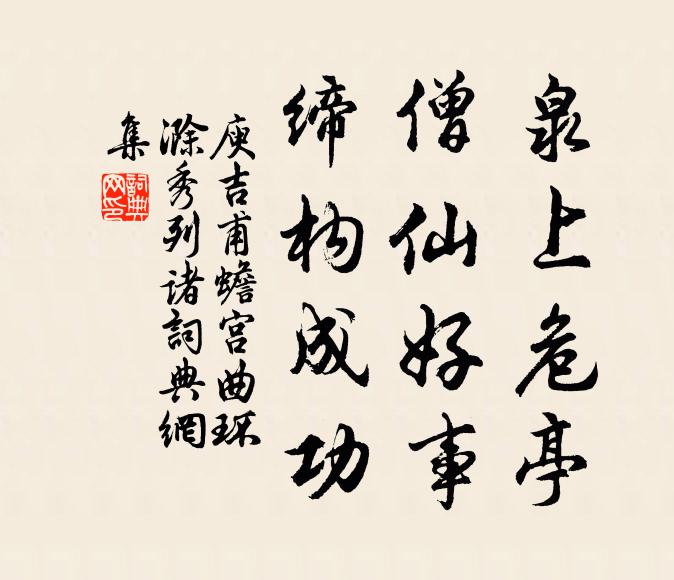 泉上危亭
僧仙好事
缔构成功
庾吉甫蟾宫曲环
滁秀列诸詞典網
集
詞典网印